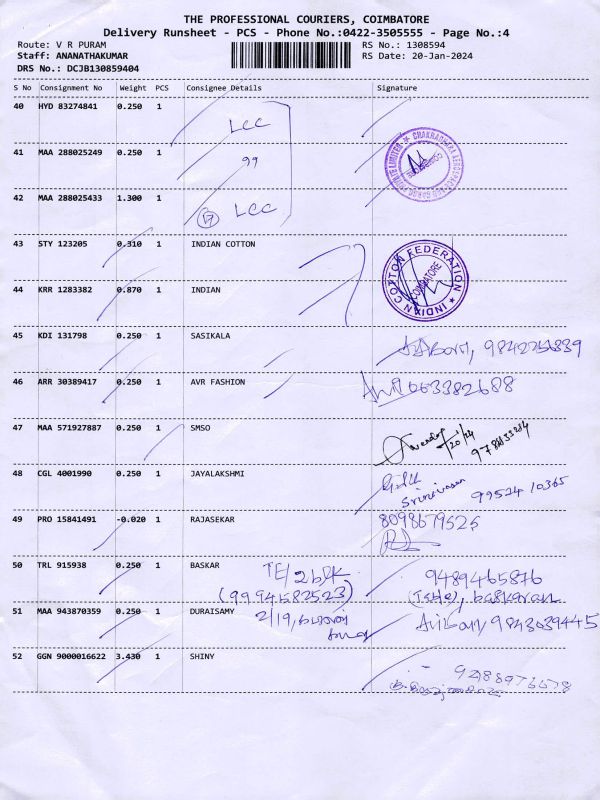 THE PROFESSIONAL COURIERS, COIMBATORE
Delivery Runsheet - PCS - Phone No.:0422-3505555 - Page No.:4
Route: V R PURAM
RS No.: 1308594
Staff: ANANATHAKUMAR
RS Date: 20-Jan-2024
DRS No.: DCJB130859404
S No Consignment No Weight PCS Consignee Details Signature
40 HYD 83274841 0.250 1 LCC
41 MAA 288025249 0.250 1 99
42 MAA 288025433 1.300 1 LCC
43 STY 123205 0.310 1 INDIAN COTTON
INDIAN COTTON FEDERATION COIMBATORE
44 KRR 1283382 0.870 1 INDIAN
45 KDI 131798 0.250 1 SASIKALA
46 ARR 30389417 0.250 1 AVR FASHION
47 MAA 571927887 0.250 1 SMSO
48 CGL 4001990 0.250 1 JAYALAKSHMI
Srinivasan 99524 10365
49 PRO 15841491 -0.020 1 RAJASEKAR 8098679525
50 TRL 915938 0.250 1 BASKAR TE/2 blk 9489465876
(9994582523) baskaran
51 MAA 943870359 0.250 1 DURAISAMY 2/19, 9843039445
52 GGN 9000016622 3.430 1 SHINY